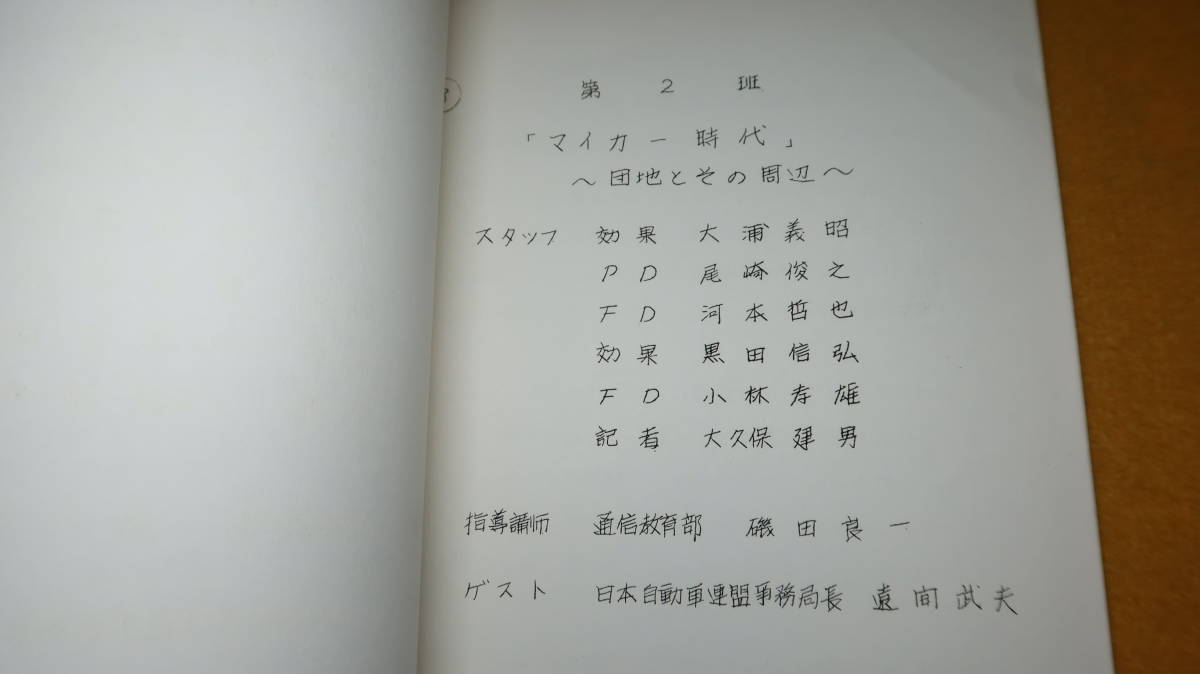 第 2 班
「マイカー時代」
～団地とその周辺～
スタッフ 効果 大浦義昭
PD 尾崎俊之
FD 河本哲也
効果 黒田信弘
FD 小林寿雄
記者 大久保建男
指導講師 通信教育部 磯田良一
ゲスト 日本自動車連盟事務局長 遠間武夫